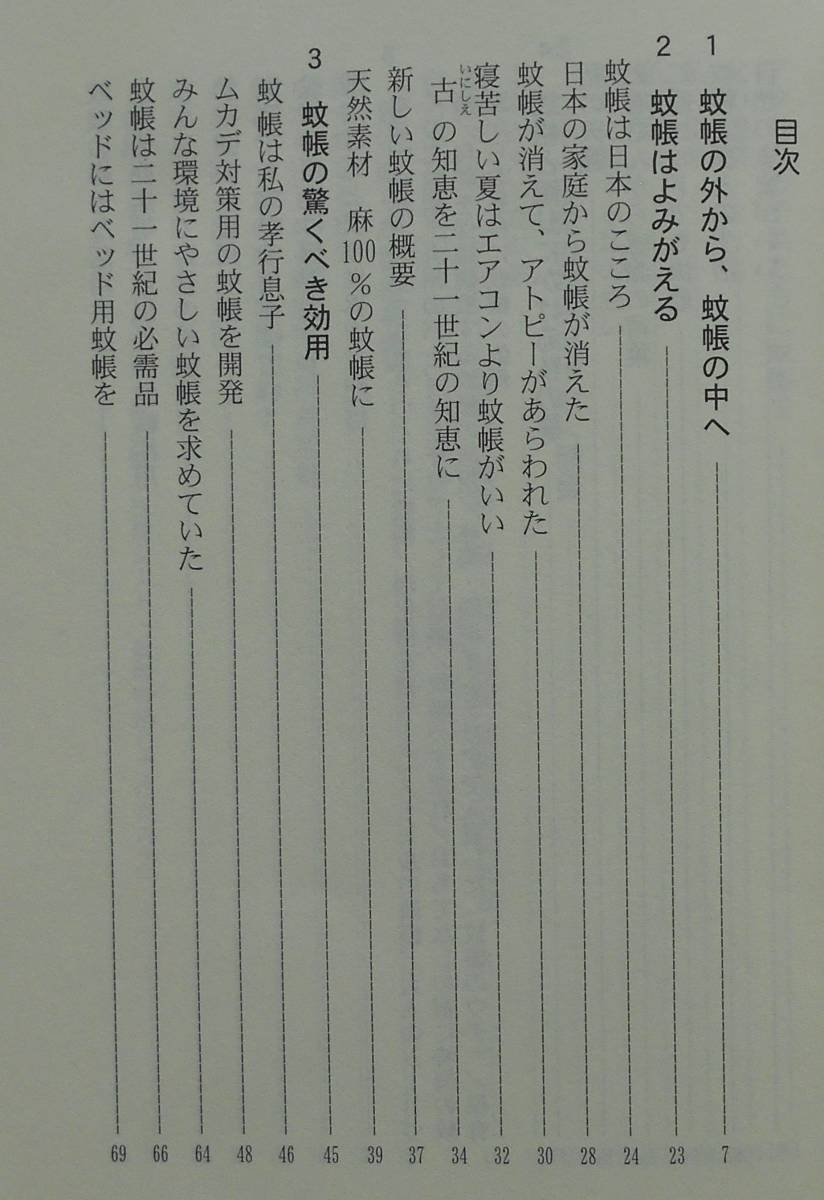 目次
1 蚊帳の外から、蚊帳の中へ 7
2 蚊帳はよみがえる 23
蚊帳は日本のこころ 24
日本の家庭から蚊帳が消えた 28
蚊帳が消えて、アトピーがあらわれた 30
寝苦しい夏はエアコンより蚊帳がいい 32
古いにしえの知恵を二十一世紀の知恵に 34
新しい蚊帳の概要 37
天然素材 麻100%の蚊帳に 39
3 蚊帳の驚くべき効用 45
蚊帳は私の孝行息子 46
ムカデ対策用の蚊帳を開発 48
みんな環境にやさしい蚊帳を求めていた 64
蚊帳は二十一世紀の必需品 66
ベッドにはベッド用蚊帳を 69